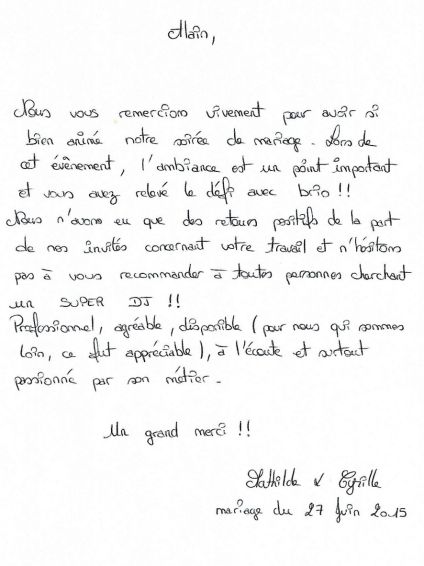 Alain,
Nous vous remercions vivement pour avoir si
bien animé notre soirée de mariage. Lors de
cet évènement, l'ambiance est un point important
et vous avez relevé le défi avec brio !!
Nous n'avons eu que des retours positifs de la part
de nos invités concernant votre travail et n'hésitons
pas à vous recommander à toutes personnes cherchant
un SUPER DJ !!
Professionnel, agréable, disponible (pour nous qui sommes
loin, ce fut appréciable), à l'écoute et surtout
passionné par son métier.
Un grand merci !!
Mathilde & Cyrille
mariage du 27 Juin 2015